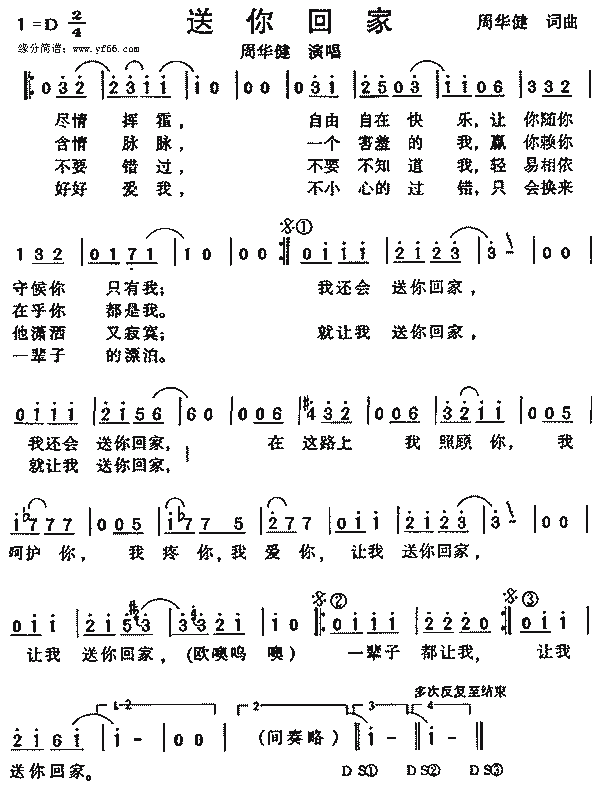 1=D 2/4 送你回家 周华健 词曲
缘分简谱: www.yf66.com 周华健 演唱
0 3 2 | 2 3 1 1 | 1 0 | 0 0 | 0 3 2 | 2 5 0 3 | 1 1 0 6 |
尽情 挥霍， 自由 自在 快 乐，让 你随你
含情 脉脉， 一个 害羞 的 我，赢 你赖你
不要 错过， 不要 不知 道 我，轻 易相依
好好 爱我， 不小 心的 过 错，只 会换来
1 3 2 | 0 1 7 1 | 1 0 | 0 0 :‖: ① 0 1 1 1 | 2 1 2 3 | 3 - | 0 0 |
守候你 只有我； 我还会 送你回家，
在乎你 都是我。
他潇洒 又寂寞； 就让我 送你回家，
一辈子 的漂泊。
0 1 1 1 | 2 1 5 6 | 6 0 | 0 0 6 | #4 3 2 | 0 0 6 | 3 2 1 1 | 0 0 5 |
我还会 送你回家， 在 这路上 我 照顾 你， 我
就让我 送你回家，
1 b7 7 7 | 0 0 5 | 1 b7 7 5 | 2 7 7 | 0 1 1 | 2 1 2 3 | 3 - | 0 0 |
呵护 你， 我 疼 你，我 爱 你， 让我 送你回家，
0 1 1 | 2 1 5 3 | 3 3 | 2 1 | 0 0 ‖: ② 0 1 1 1 | 2 2 2 0 :‖: ③ 0 1 1 |
让我 送你回家，(欧噢呜 噢) 一辈子 都让我， 让我
多次反复至结束
1-2 2 3 4
2 1 6 1 | 1 - | 0 0 | (间奏略) | 1 - | 1 - ‖
送你回家。 DS① DS② DS③